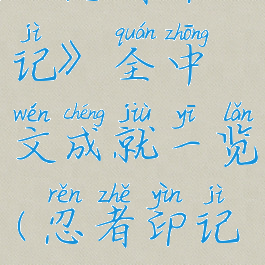 jì quán zhōng
记》 全中
wén chéng jiù yī lǎn
文成就一览
rěn zhě yìn jì
(忍者印记